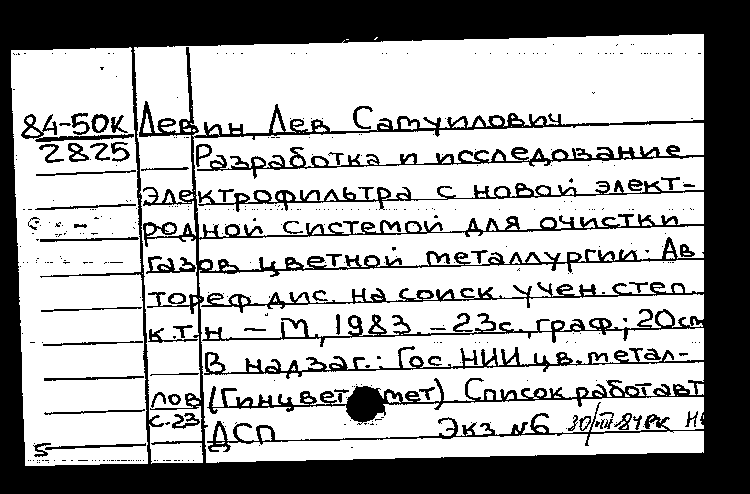 84-50К Левин, Лев Самуилович
2825 Разработка и исследование
электрофильтра с новой элект-
родной системой для очистки
газов цветной металлургии: Ав
тореф. дис. на соиск. учен. степ.
к.т.н. - М., 1983. - 23с., граф.; 20см
В надзаг.: Гос. НИИ цв. метал-
лов (Гинцветмет) Список работ авт
с.23
ДСП Экз №6
5